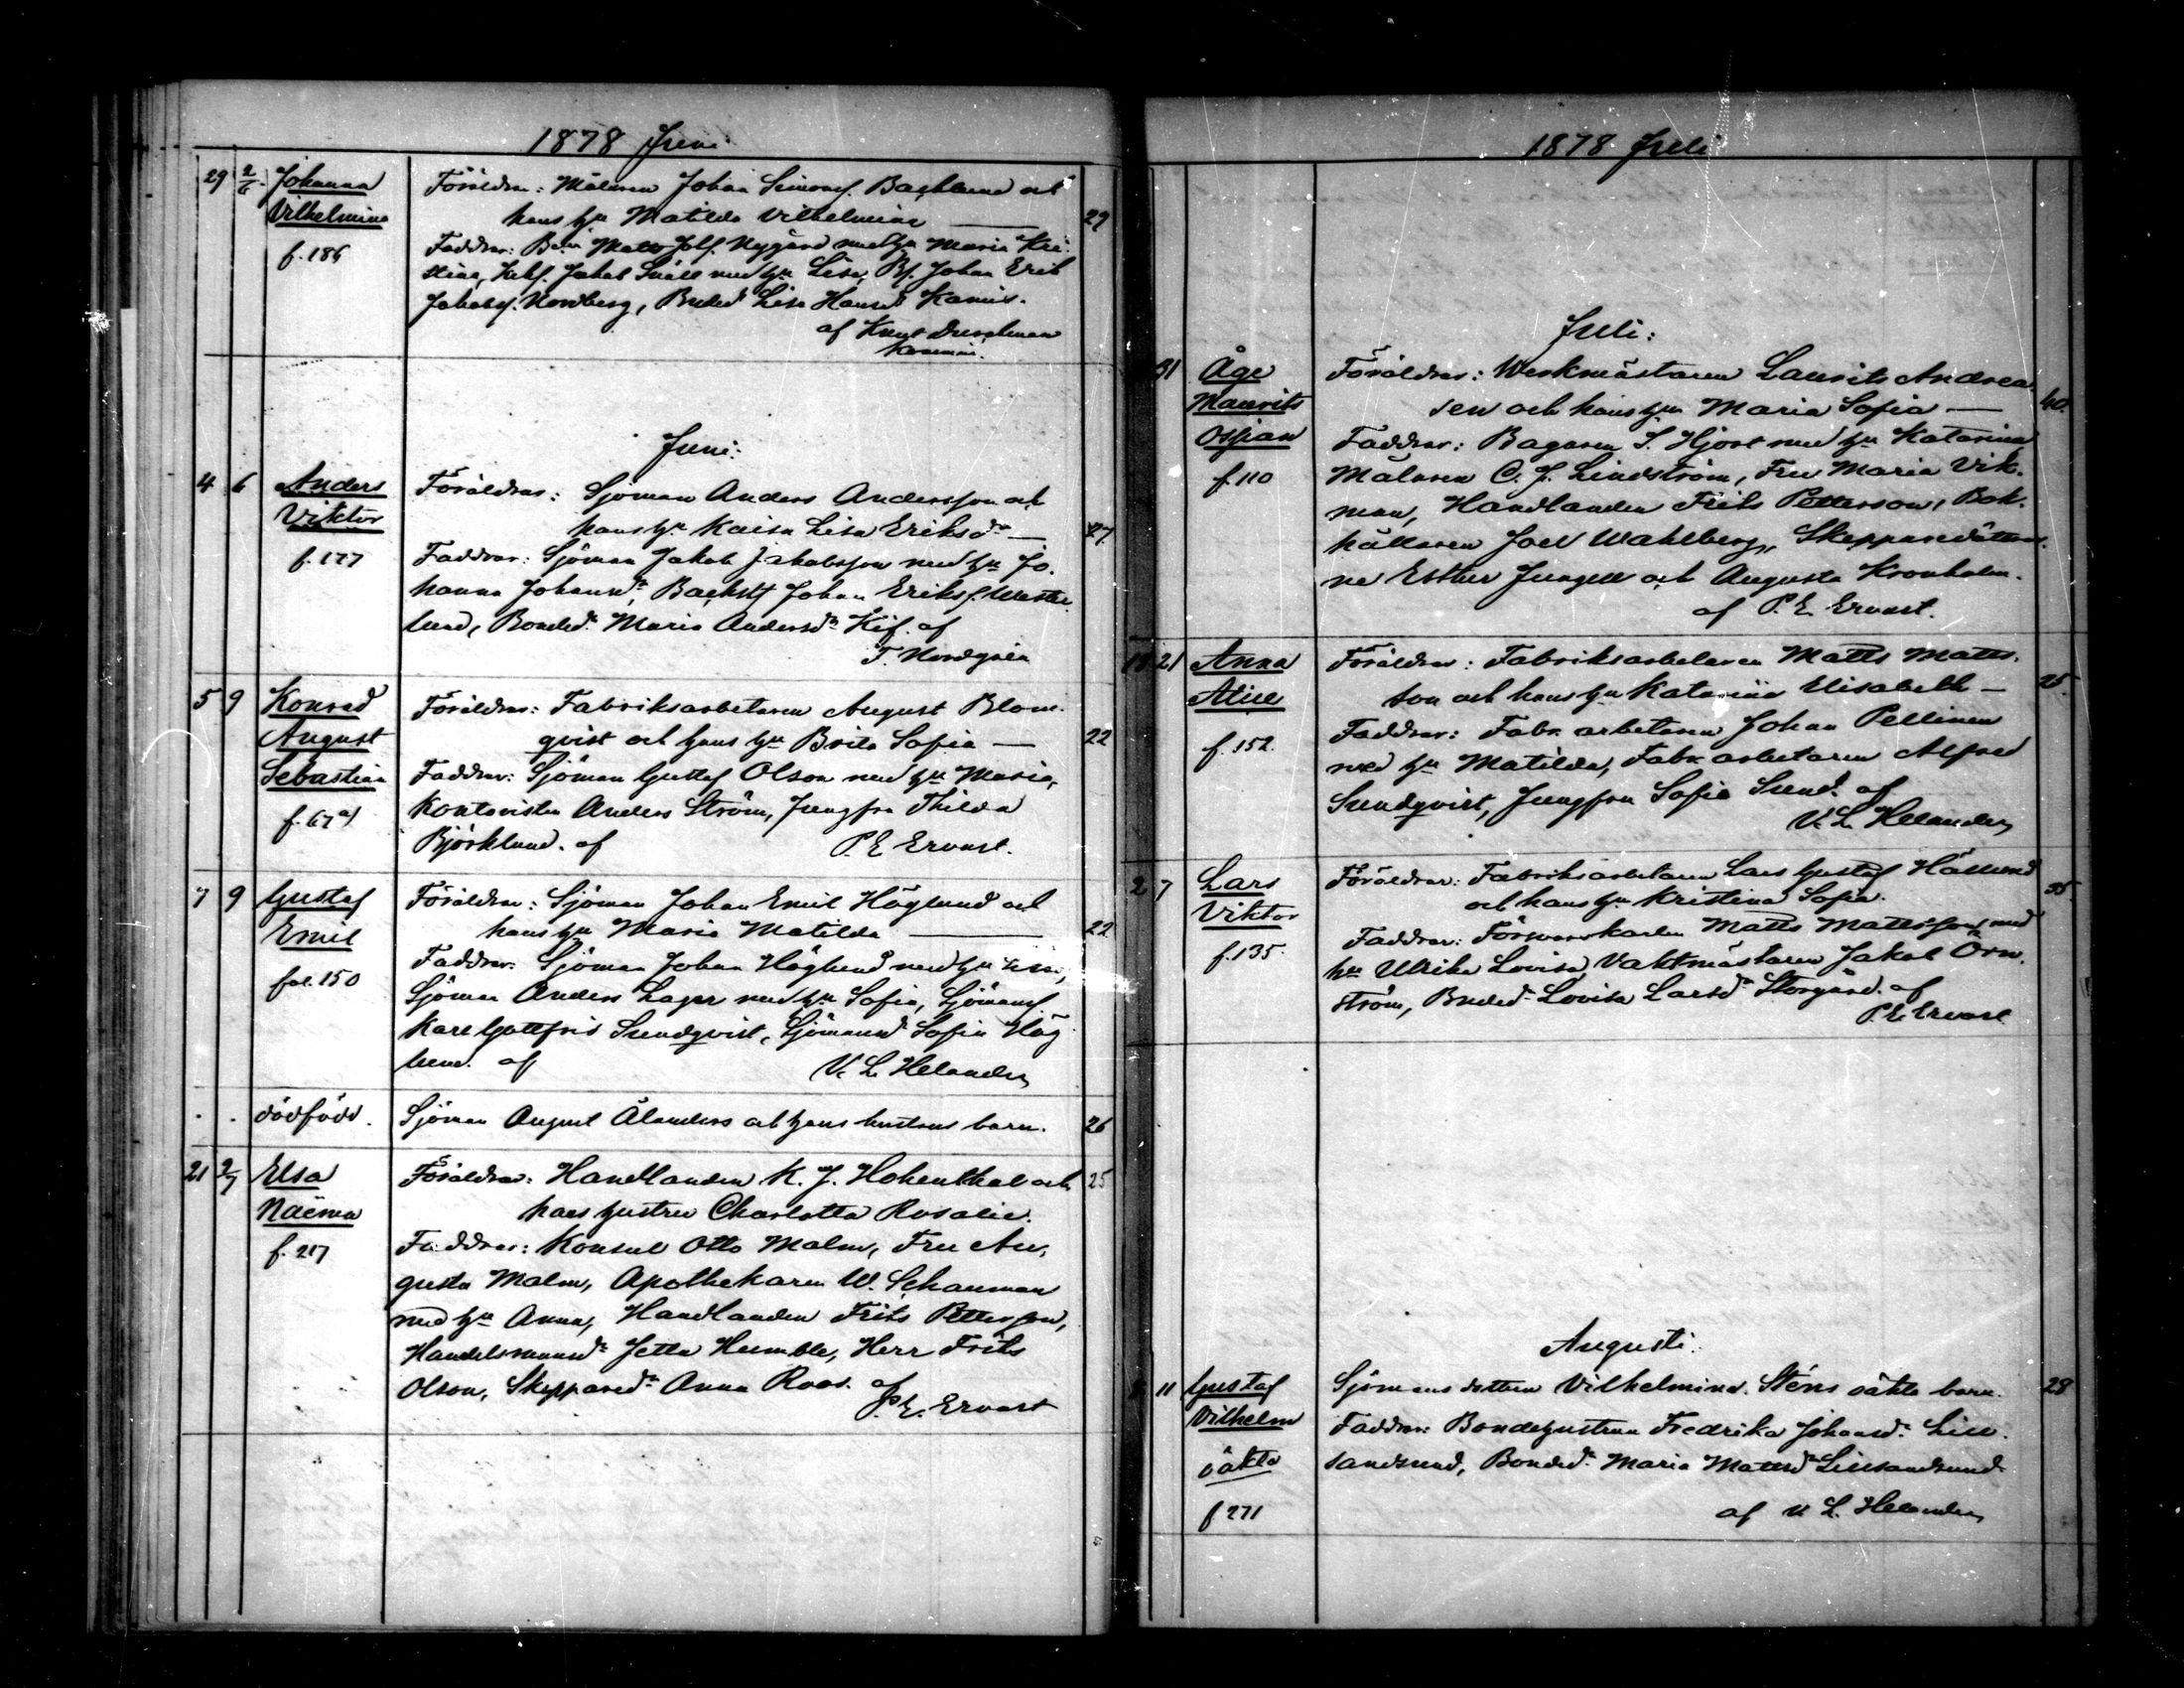 1878 Juni
29 2/6 Johanna Vilhelmina f. 186
Föräldrar: Målaren Johan Simonsf. Backlund och
hans hu Matilda Vilhelmina — 29
Faddrar: Matts Nygård med hu Maria Kri-
stina, Jakob Snåre med hu Lisa, Johan Erik
Jakobsf. Nordberg, Lisa
af Knut
Juni:
4 6 Anders Viktor f. 177
Föräldrar: Sjöman Anders Andersson och
hans hu Kaisa Lisa Eriksdr — 27
Faddrar: Sjöman Jakob Jakobsson med hu Jo-
hanna Johansdr, Johan Eriksf. Wester-
lund, Bonded. Maria Andersdr af
T. Nordgren
5 9 Konrad August Sebastian f. 67 a)
Föräldrar: Fabriksarbetaren August Blom-
qvist och hans hu Brita Sofia — 22
Faddrar: Sjöman Gustaf Olson med hu Maria,
Kontoristen Anders Ström, Jungfru Thilda
Björklund. af P. E. Ervast.
7 9 Gustaf Emil fol. 150
Föräldrar: Sjöman Johan Emil Höglund och
hans hu Maria Matilda — 22
Faddrar: Sjöman Johan Höglund med hu Lisa,
Sjöman Anders Lager med hu Sofia, Sjömansf.
Karl Gottfrid Sundqvist, Sjömansd. Sofia Hög-
lund. af V. L. Helander
. . dödfödd. Sjöman August Ålanders och hans hustrus barn. 26
21 2/7 Elsa Naëma f. 217
Föräldrar: Handlanden K. J. Hohenthal och 25
hans hustru Charlotta Rosalie.
Faddrar: Konsul Otto Malm, Fru Au-
gusta Malm, Apothekaren W. Schauman
med hu Anna, Handlanden Frits Petterson,
Handelsmansdr Jetta Humble, Herr Frits
Olson, Skepparedr Anna Roos. af
P. E. Ervast
1878 Juli
Juli:
31 Åge Maurits Ossian f. 110
Föräldrar: Werkmästaren Laurits Andrea-
sen och hans hu Maria Sofia — 40.
Faddrar: Bagaren S. Hjort med hu Katarina
Målaren C. J. Lindström, Fru Maria Vik-
man, Handlanden Frits Petterson, Bok-
hållaren Joel Wahlberg, Skepparedöttrar-
ne Esther Jungell och Augusta Kronholm.
af P. E. Ervast.
18 21 Anna Alice f. 152.
Föräldrar: Fabriksarbetaren Matts Matts-
son och hans hu Katarina Elisabeth — 25.
Faddrar: Fabr. arbetaren Johan Pellinen
med hu Matilda, Fabr. arbetaren Alfred
Sundqvist, Jungfru Sofia Sund. af
V. L. Helander
2 7 Lars Viktor f. 135.
Föräldrar: Fabriksarbetaren Lars Gustaf Hällund 35.
och hans hu Kristina Sofia.
Faddrar: Förswarskarlen Matts Mattsson med
hu Ulrika Lovisa, Vaktmästaren Jakob Örn-
ström, Bonded. Lovisa Larsdr Storgård. af
P. E. Ervast
Augusti.
8 11 Gustaf Vilhelm oäkta f 271
Sjömansdottren Vilhelmina Sténs oäkta barn. 28
Faddrar: Bondehustrun Fredrika Johansdr Lill-
sandsund, Bondedr Maria Mattsdr Lillsandsund
af V. L. Helander